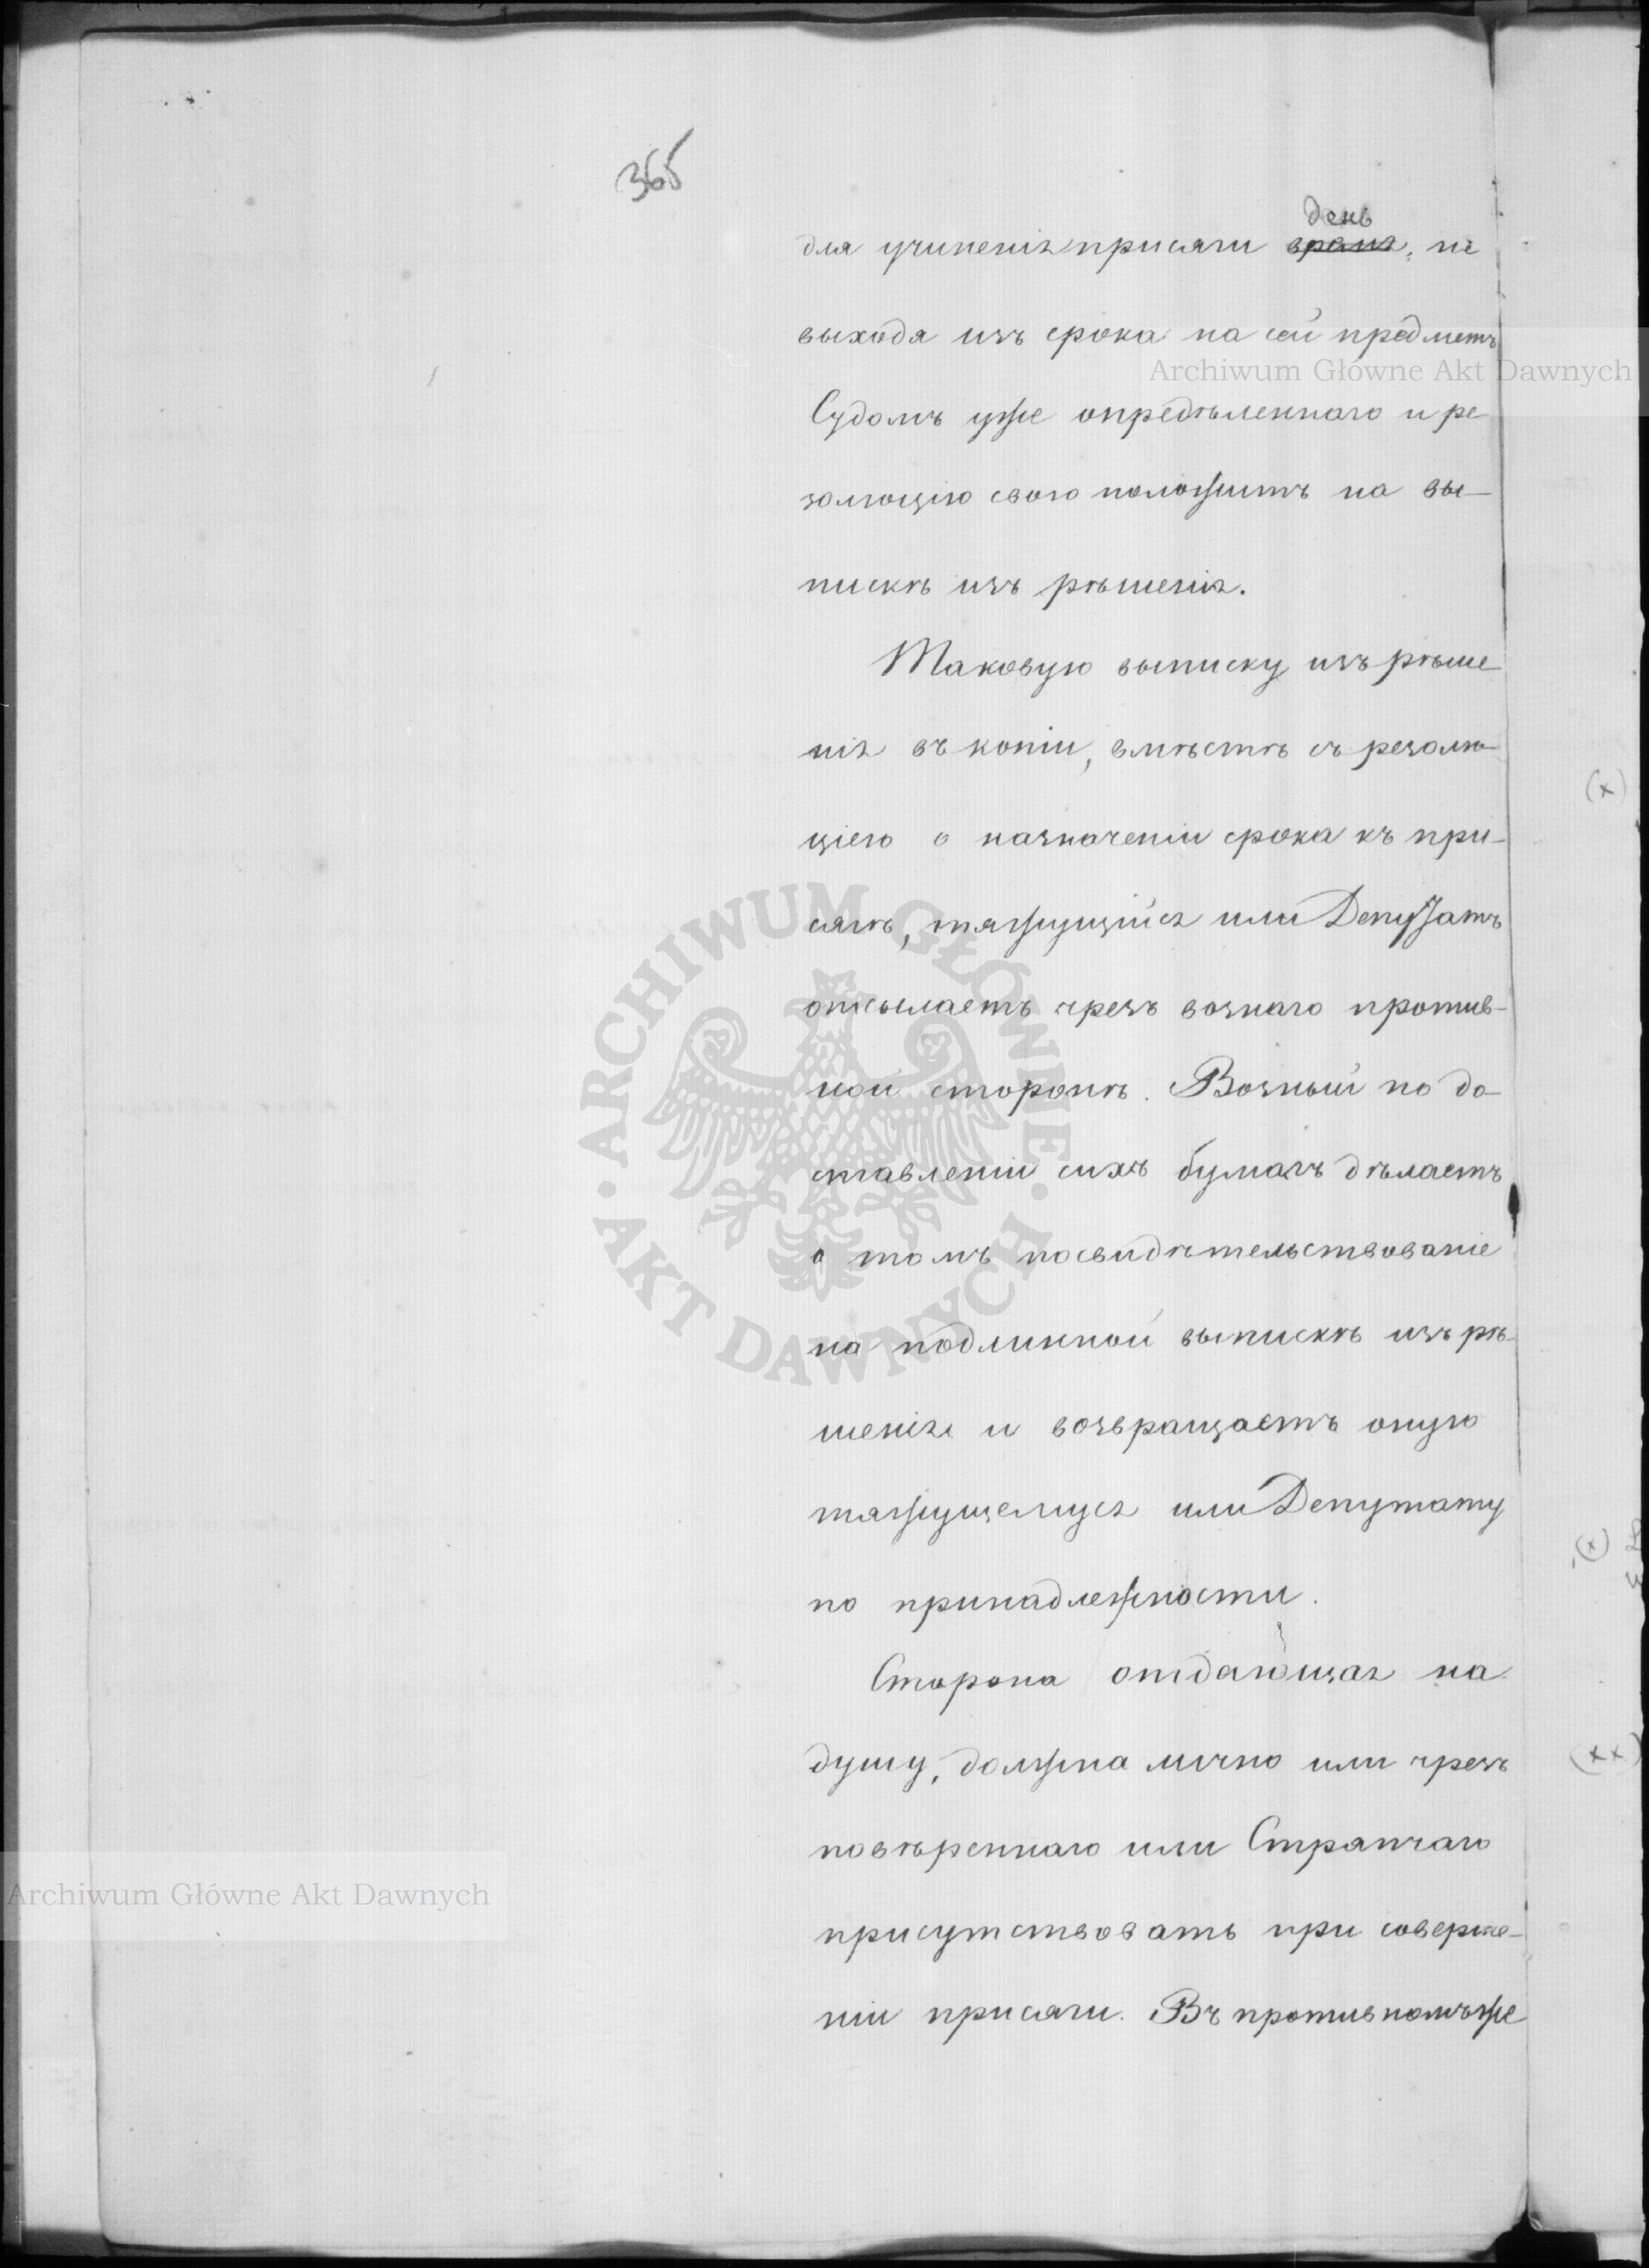 366
день
для учиненія присяги время, не
выходя изъ срока на сей предметъ
Archiwum Główne Akt Dawnych
Судомъ уже опредѣленнаго и ре
золюцію свою положитъ на вы-
пискѣ изъ рѣшенія.
Таковую выписку изъ рѣше
нія въ копіи, вмѣстѣ съ резолю
ціею о назначеніи срока къ при-
(x)
сягѣ, тяжущійся или Депутатъ
отсылаетъ чрезъ вознаго против-
ной сторонѣ. Возный по до-
ставленіи сихъ бумагъ дѣлаетъ
о томъ посвидѣтельствованіе
на подлинной выпискѣ изъ рѣ-
шенія и возвращаетъ оную
тяжущемуся или Депутату
(x)
по принадлежности.
Сторона отдающая на
душу, должна лично или чрезъ
(xx)
повѣреннаго или Стряпчаго
Archiwum Główne Akt Dawnych
присутствовать при соверше-
ніи присяги. Въ противномъ же
ARCHIWUM GŁÓWNE · AKT DAWNYCH ·